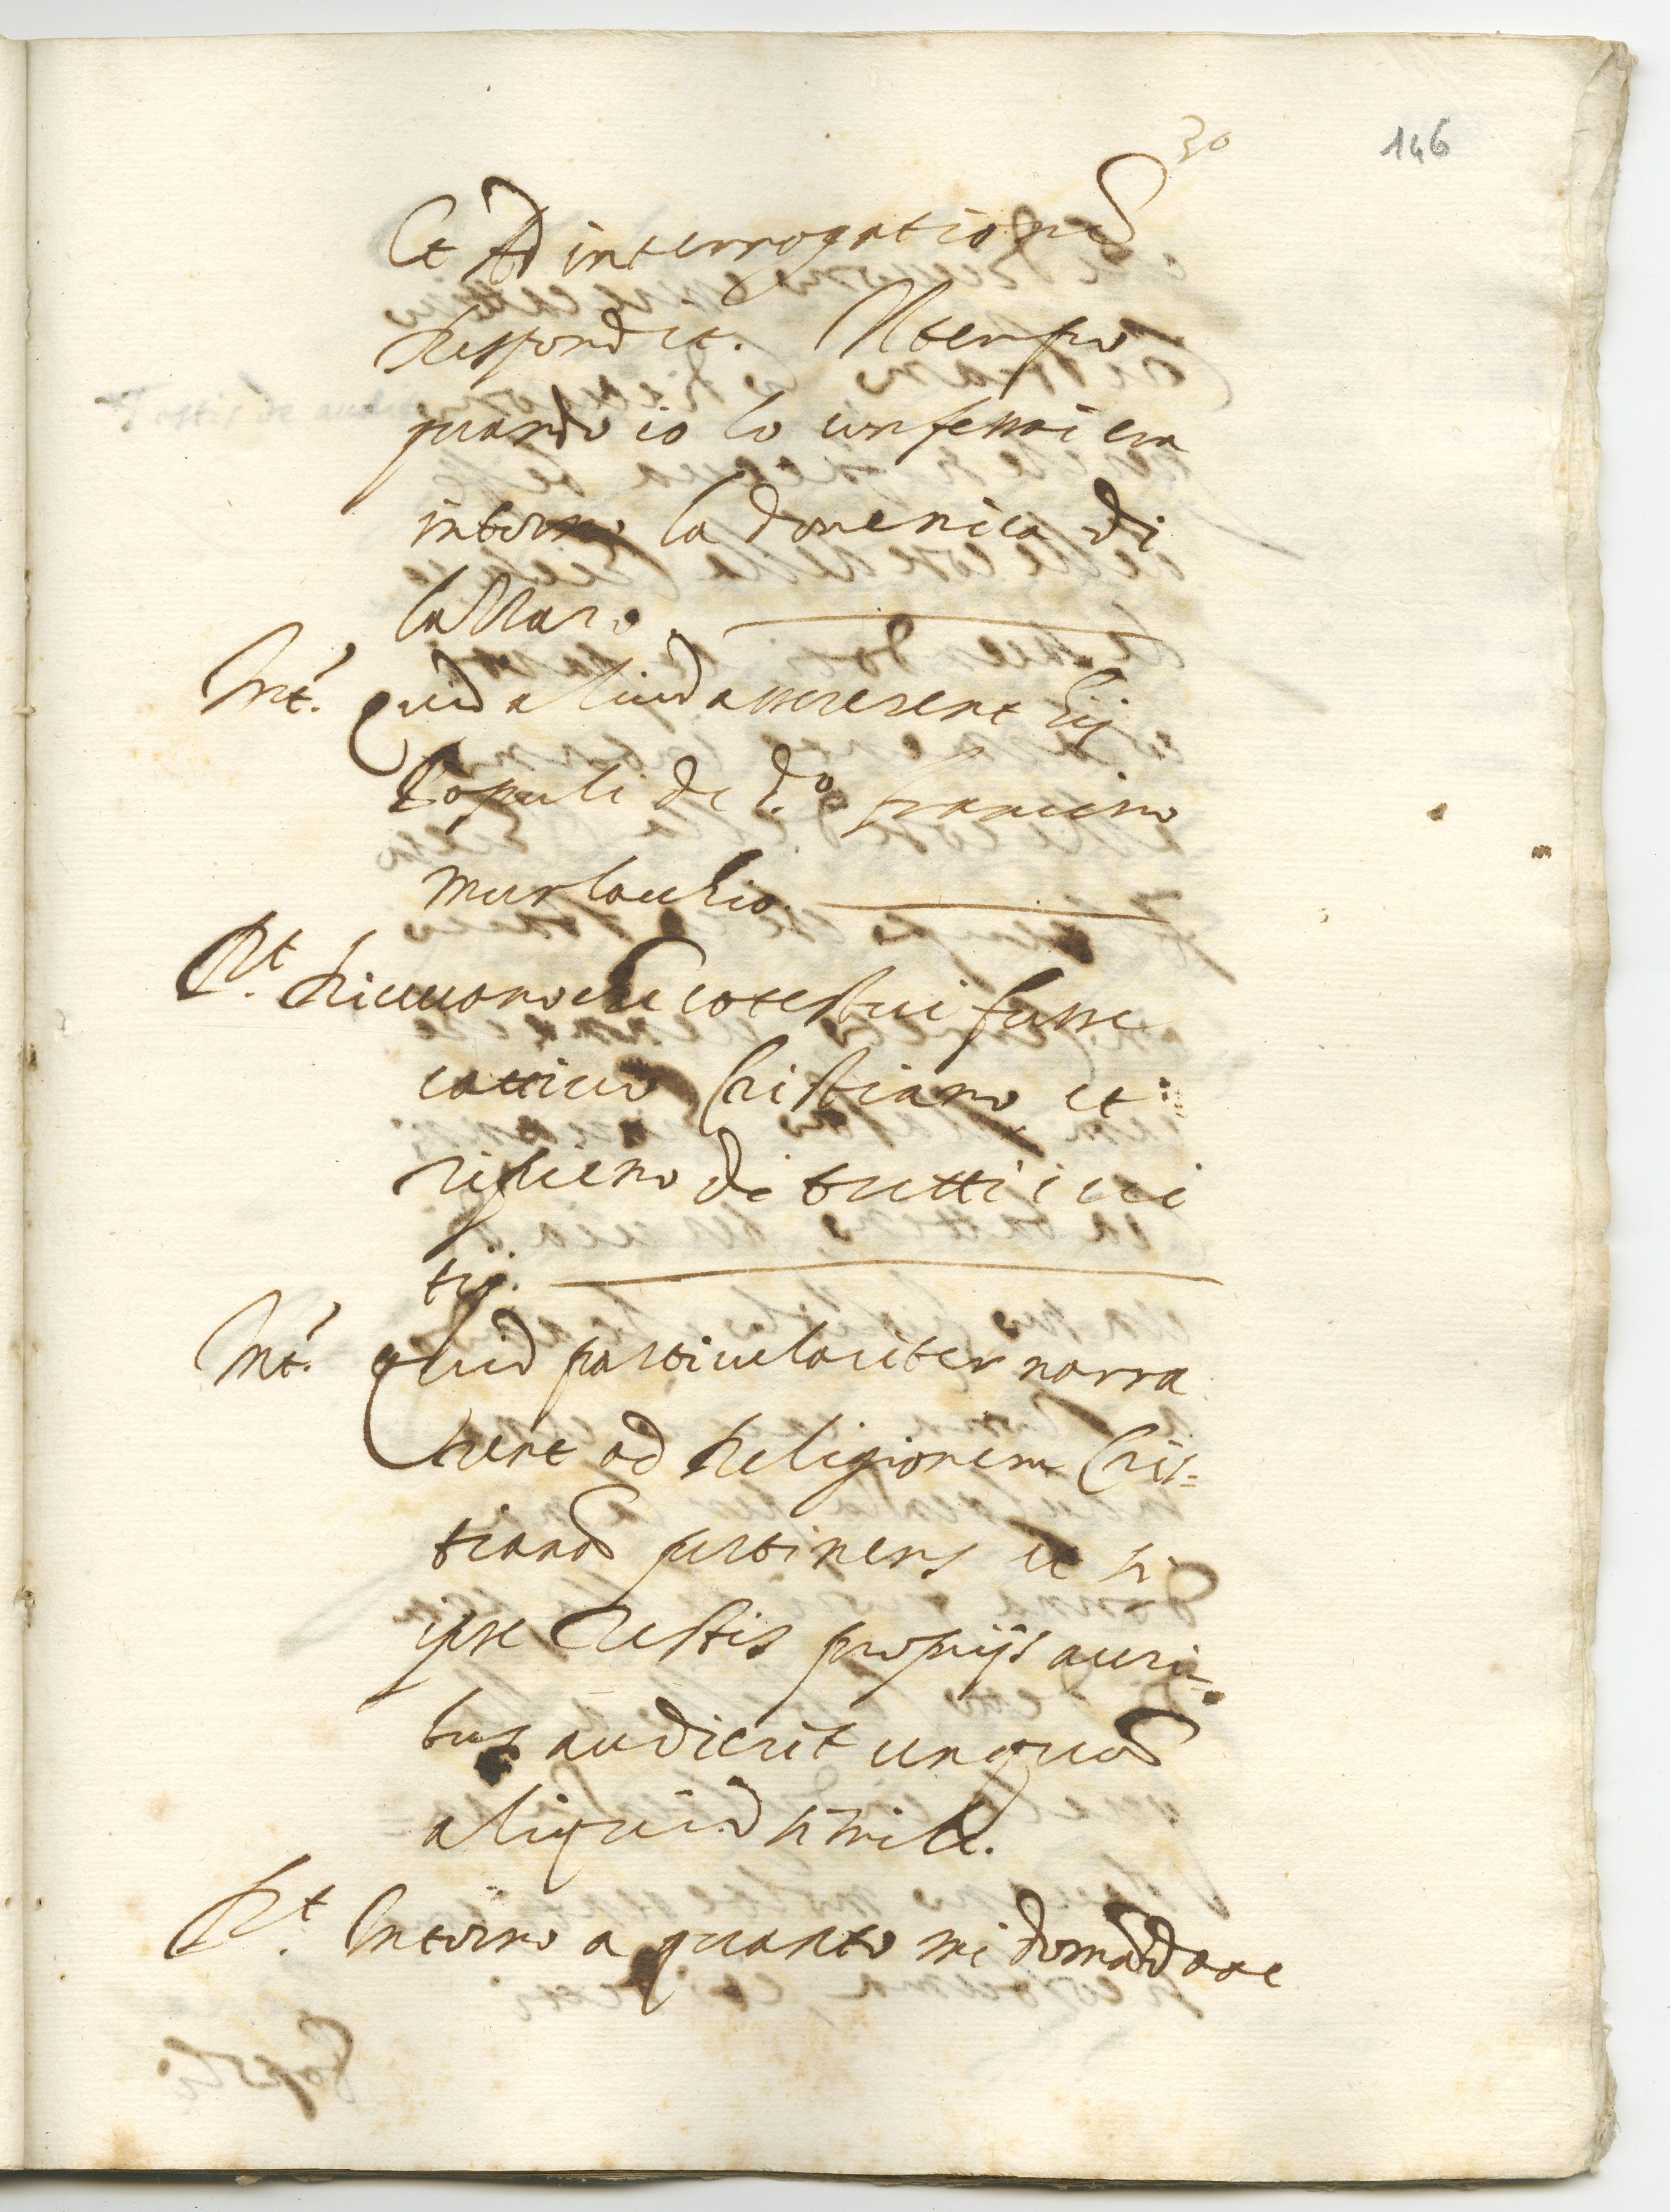 30
146
Et Ad interrogationem
Respondit. Il tempo
quando io lo confessai era
intorno la domenica di
lazzaro.
Int. Quid aliud assererent hij
Populi de d.o Francisco
Murlacchio.
Rt. Diceuano che cotestui fusse
cattiuo Cristiano et
ripieno di tutti i ui
tij.
Int. Quid particulariter narra
rent ad Religionem Cris=
tianam pertinens et si
ipse Testis proprijs auri=
bus audierit unquam
aliquid simile.
Rt. Intorno a quanto mi domandate